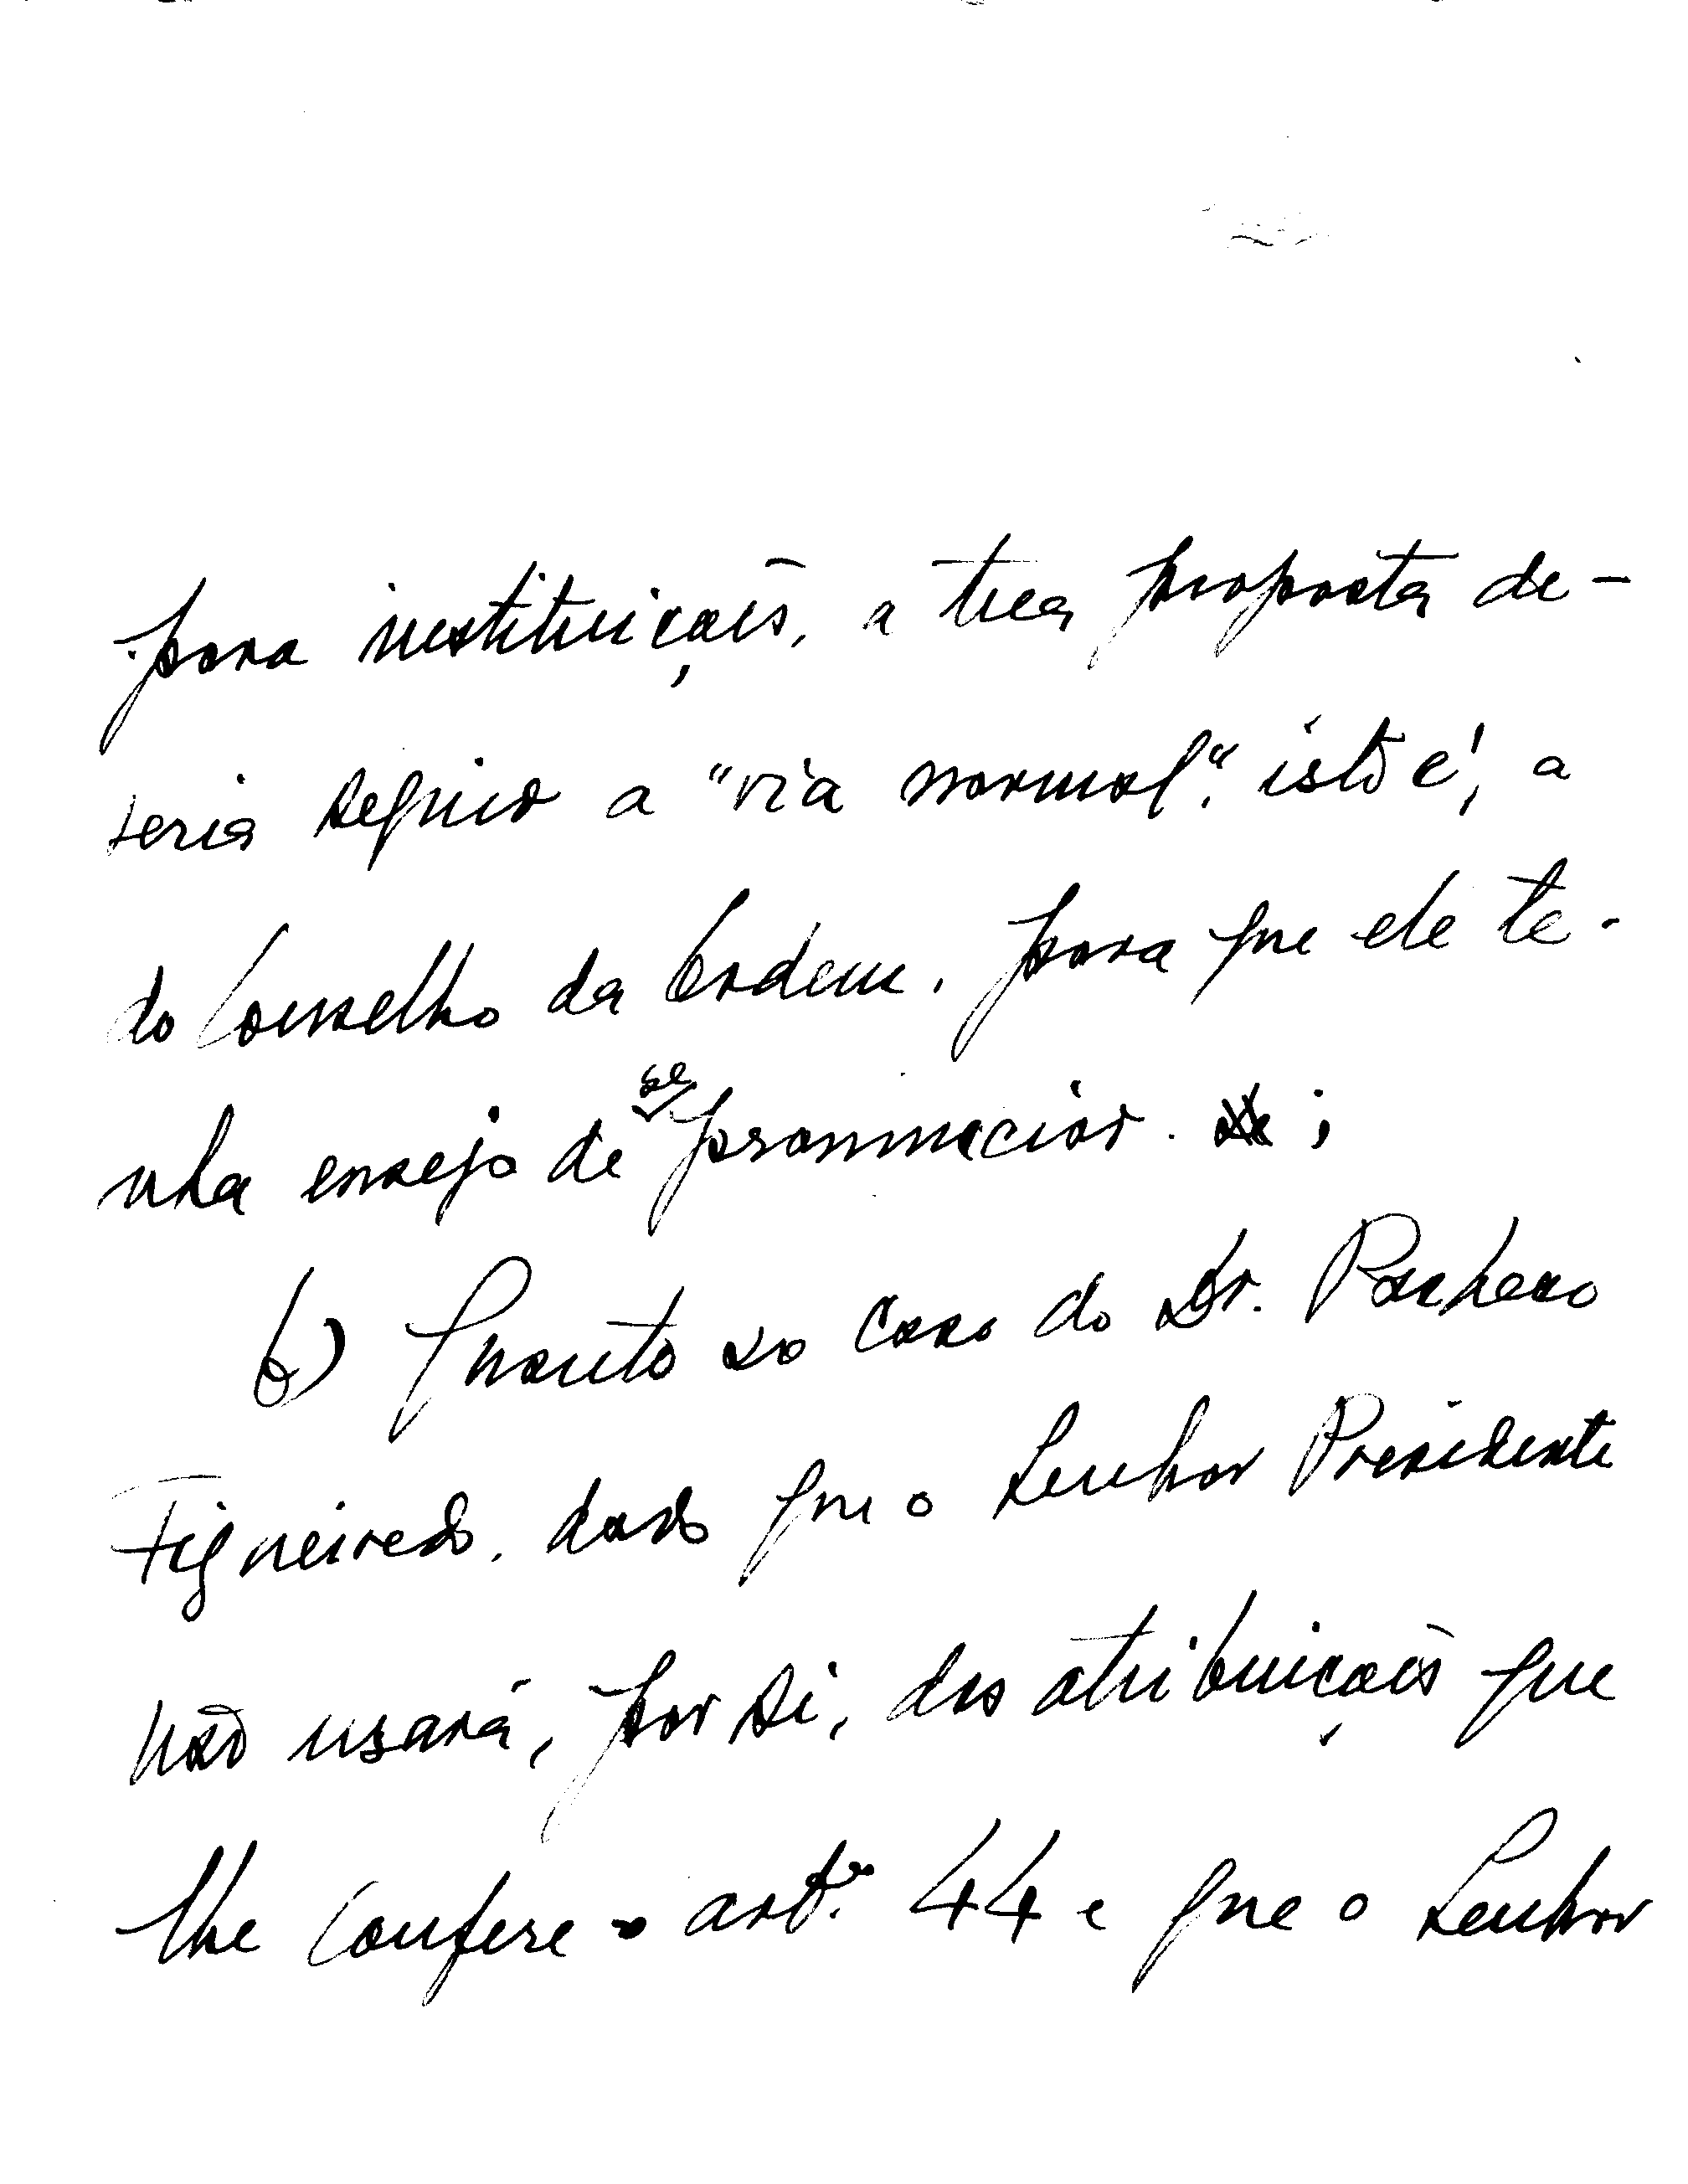 para instituições, a tua proposta de-
veria seguir a "via normal", isto é, a
do Conselho da Ordem, para que ele te-
nha ensejo de se pronunciar. ;
b) Quanto ao caso do Dr. Pacheco
Figueiredo, dado que o Senhor Presidente
não usará, por si, das atribuições que
lhe confere o artº. 44 e que o Senhor